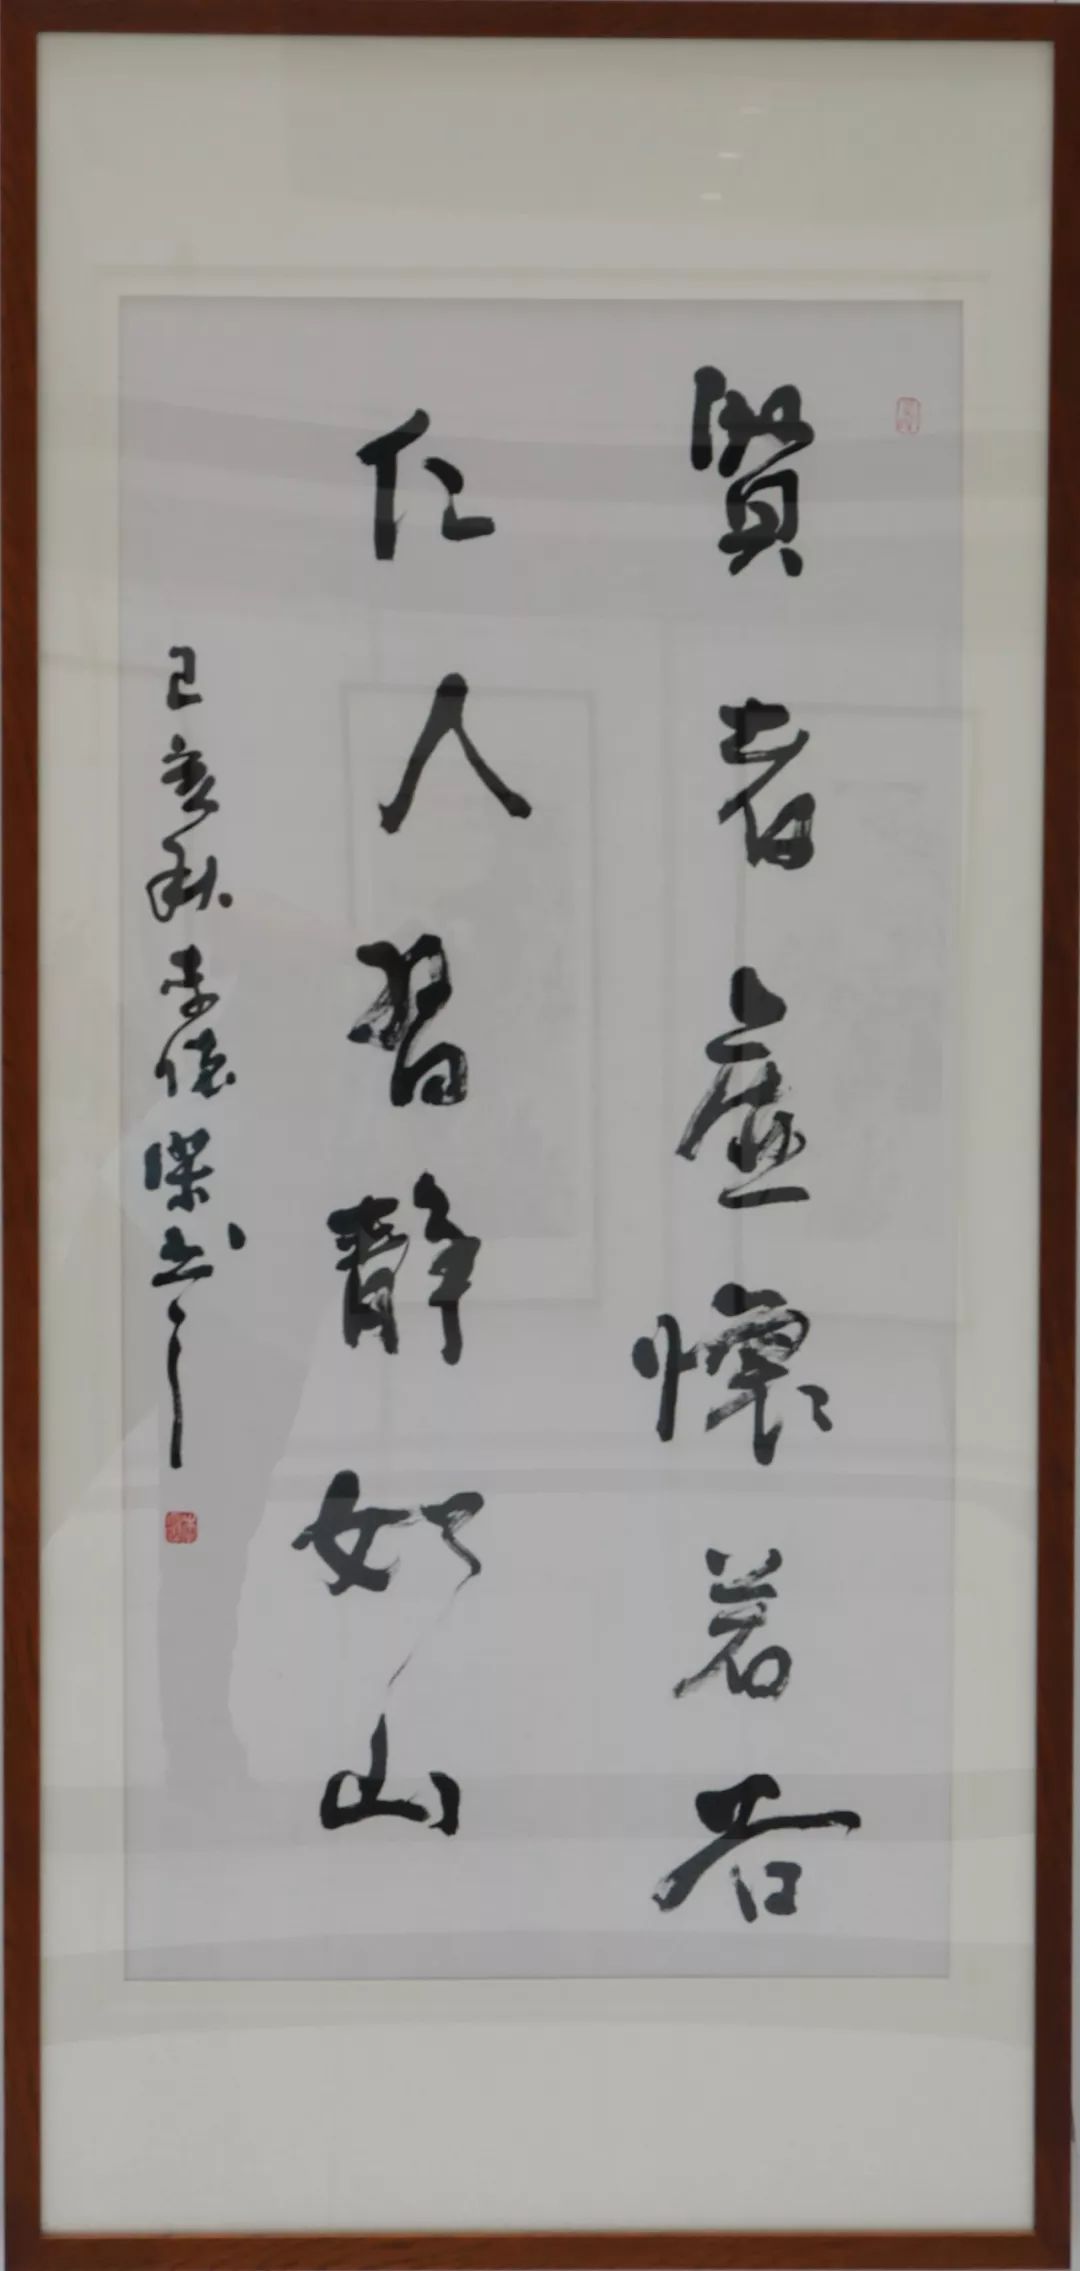 賢者虛懷若谷
仁人習靜如山
己亥秋李德傑书